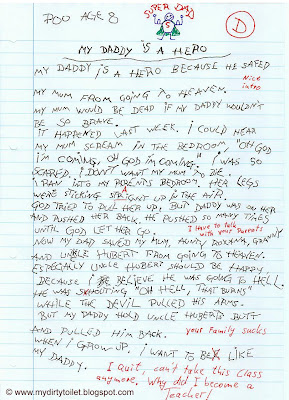 POO AGE 8
SUPER DAD
D
MY DADDY iS A HERO
MY DADDY iS A HERO BECAUSE HE SAFED
Nice intro
MY MUM FROM GOiNG TO HEAVEN.
MY MUM WOULD BE DEAD iF MY DADDY WOULDN'T
BE SO BRAVE.
iT HAPPENED LAST WEEK. i COULD HEAR
MY MUM SCREAM iN THE BEDROOM, "OH GOD
i'M COMiNG, OH GOD i'M COMiNG." i WAS SO
SCARED. i DON'T WANT MY MUM TO DiE.
i RAN iNTO MY PARENTS BEDROOM. HER LEGS
WERE STiCKiNG STRAiGHT UP iN THE AiR.
GOD TRiED TO PULL HER UP, BUT DADDY WAS ON HER
AND PUSHED HER BACK. HE PUSHED SO MANY TiMES
UNTiL GOD LET HER GO.
I have to talk with your Parents
NOW MY DAD SAVED MY MUM, AUNTY ROXANA, GRANNY
AND UNCLE HUBERT FROM GOiNG TO HEAVEN.
ESPECiALLY UNCLE HUBERT SHOULD BE HAPPY
BECAUSE i BELiEVE HE WAS GOiNG TO HELL.
HE WAS SHOUTiNG "OH HELL, THAT BURNS"
WHiLE THE DEViL PULLED HiS ARMS.
BUT MY DADDY HOLD UNCLE HUBERTS BUTT
AND PULLED HiM BACK.
your Family sucks
WHEN i GROW UP, i WANT TO BE LiKE
MY DADDY.
I Quit, can't take this Class
anymore. Why did I become a
Teacher!
© www.mydirtytoilet.blogspot.com